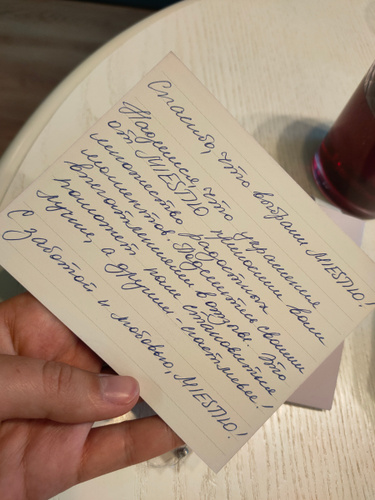 Спасибо, что выбрали MIESTILO!
Надеемся, что украшения
от MIESTILO приносят вам
множество радостных
моментов. Поделитесь своими
впечатлениями в отзыве. Это
поможет нам становиться
лучше, а другим - счастливее!
С заботой и любовью, MIESTILO!